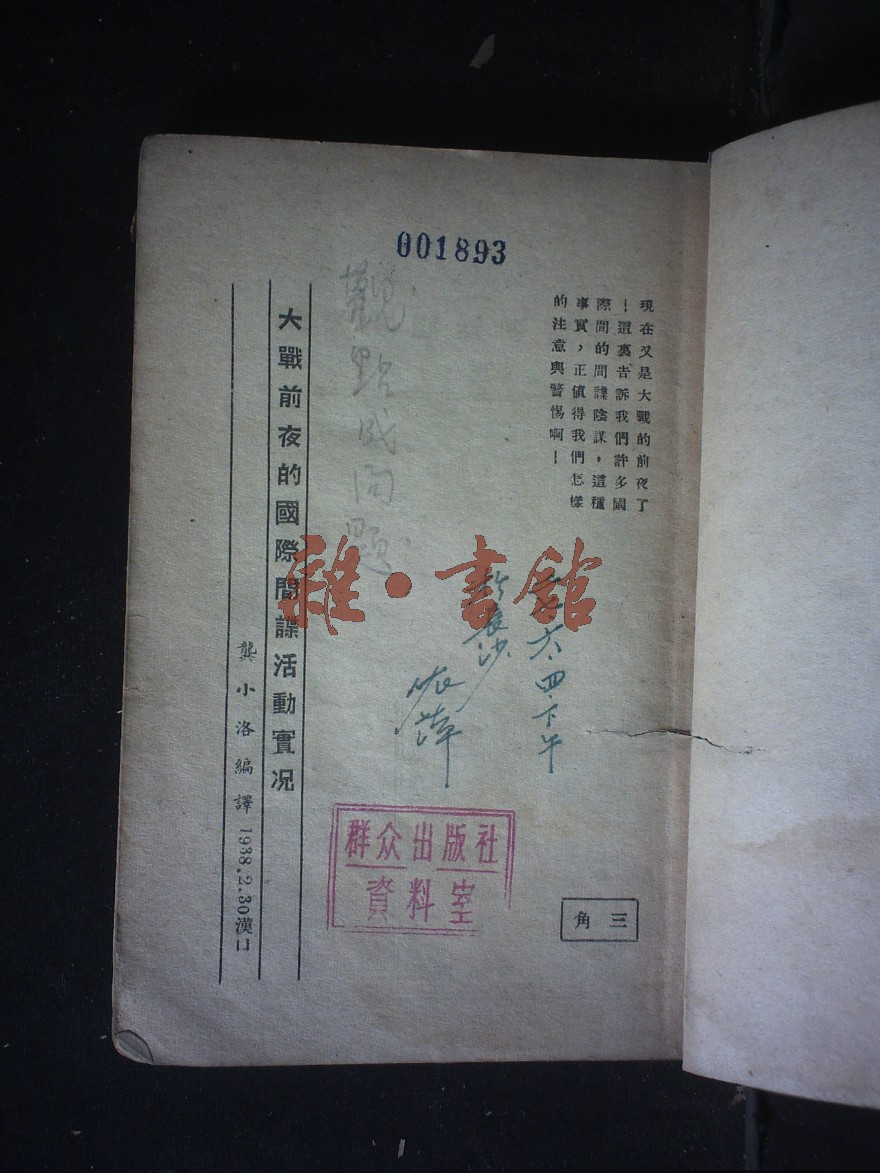 001893
現在又是大戰的前夜了
！這裏告訴我們許多國
際間的間諜陰謀，這種
事實，正值得我們怎樣
的注意與警惕啊！
觀點成问題
六.四.下午
長沙
大戰前夜的國際間諜活動實况
龔小洛編譯 1938.2.30漢口
雜·書館
群众出版社
資料室
三角